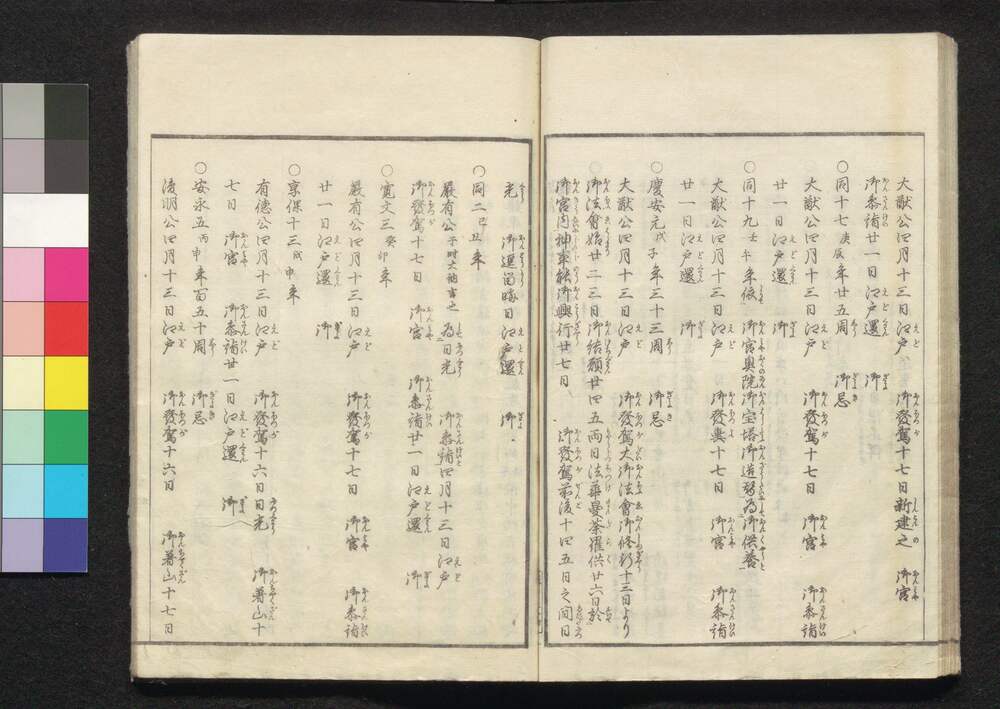 大猷公四月十三日江戸　御發駕十七日新建之　御宮
御参詣廿一日江戸還　御
〇同十七庚辰年廿五周　御忌
大猷公四月十三日江戸　御發駕十七日　御宮　御参詣
廿一日江戸還　御
〇同十九壬午年依　御宮奥院御宝塔御造替為御供養
大猷公四月十三日江戸　御發輿十七日　御宮　御参詣
廿一日江戸還　御
〇慶安元戊子年三十三周　御忌
大猷公四月十三日江戸　御發駕大御法會御修行十三日より
御法會始廿二三日御結願廿四五両日法華曼荼羅供廿六日於
御宮内神事能御興行廿七日　御發駕前後十四五日之間日
光　御逗留晦日江戸還　御
〇同二己丑年
嚴有公于時大納言之　為日光　御参詣四月十三日江戸
御發駕十七日　御宮　御参詣廿一日江戸還　御
〇寛文三癸卯年
嚴有公四月十三日江戸　御發駕十七日　御宮　御参詣
廿一日江戸還　御
〇享保十三戊申年
有徳公四月十三日江戸　御發駕十六日日光　御着山十
七日　御宮　御参詣廿一日江戸還　御
〇安永五丙申年百五十周　御忌
浚明公四月十三日江戸　御發駕十六日　御着山十七日